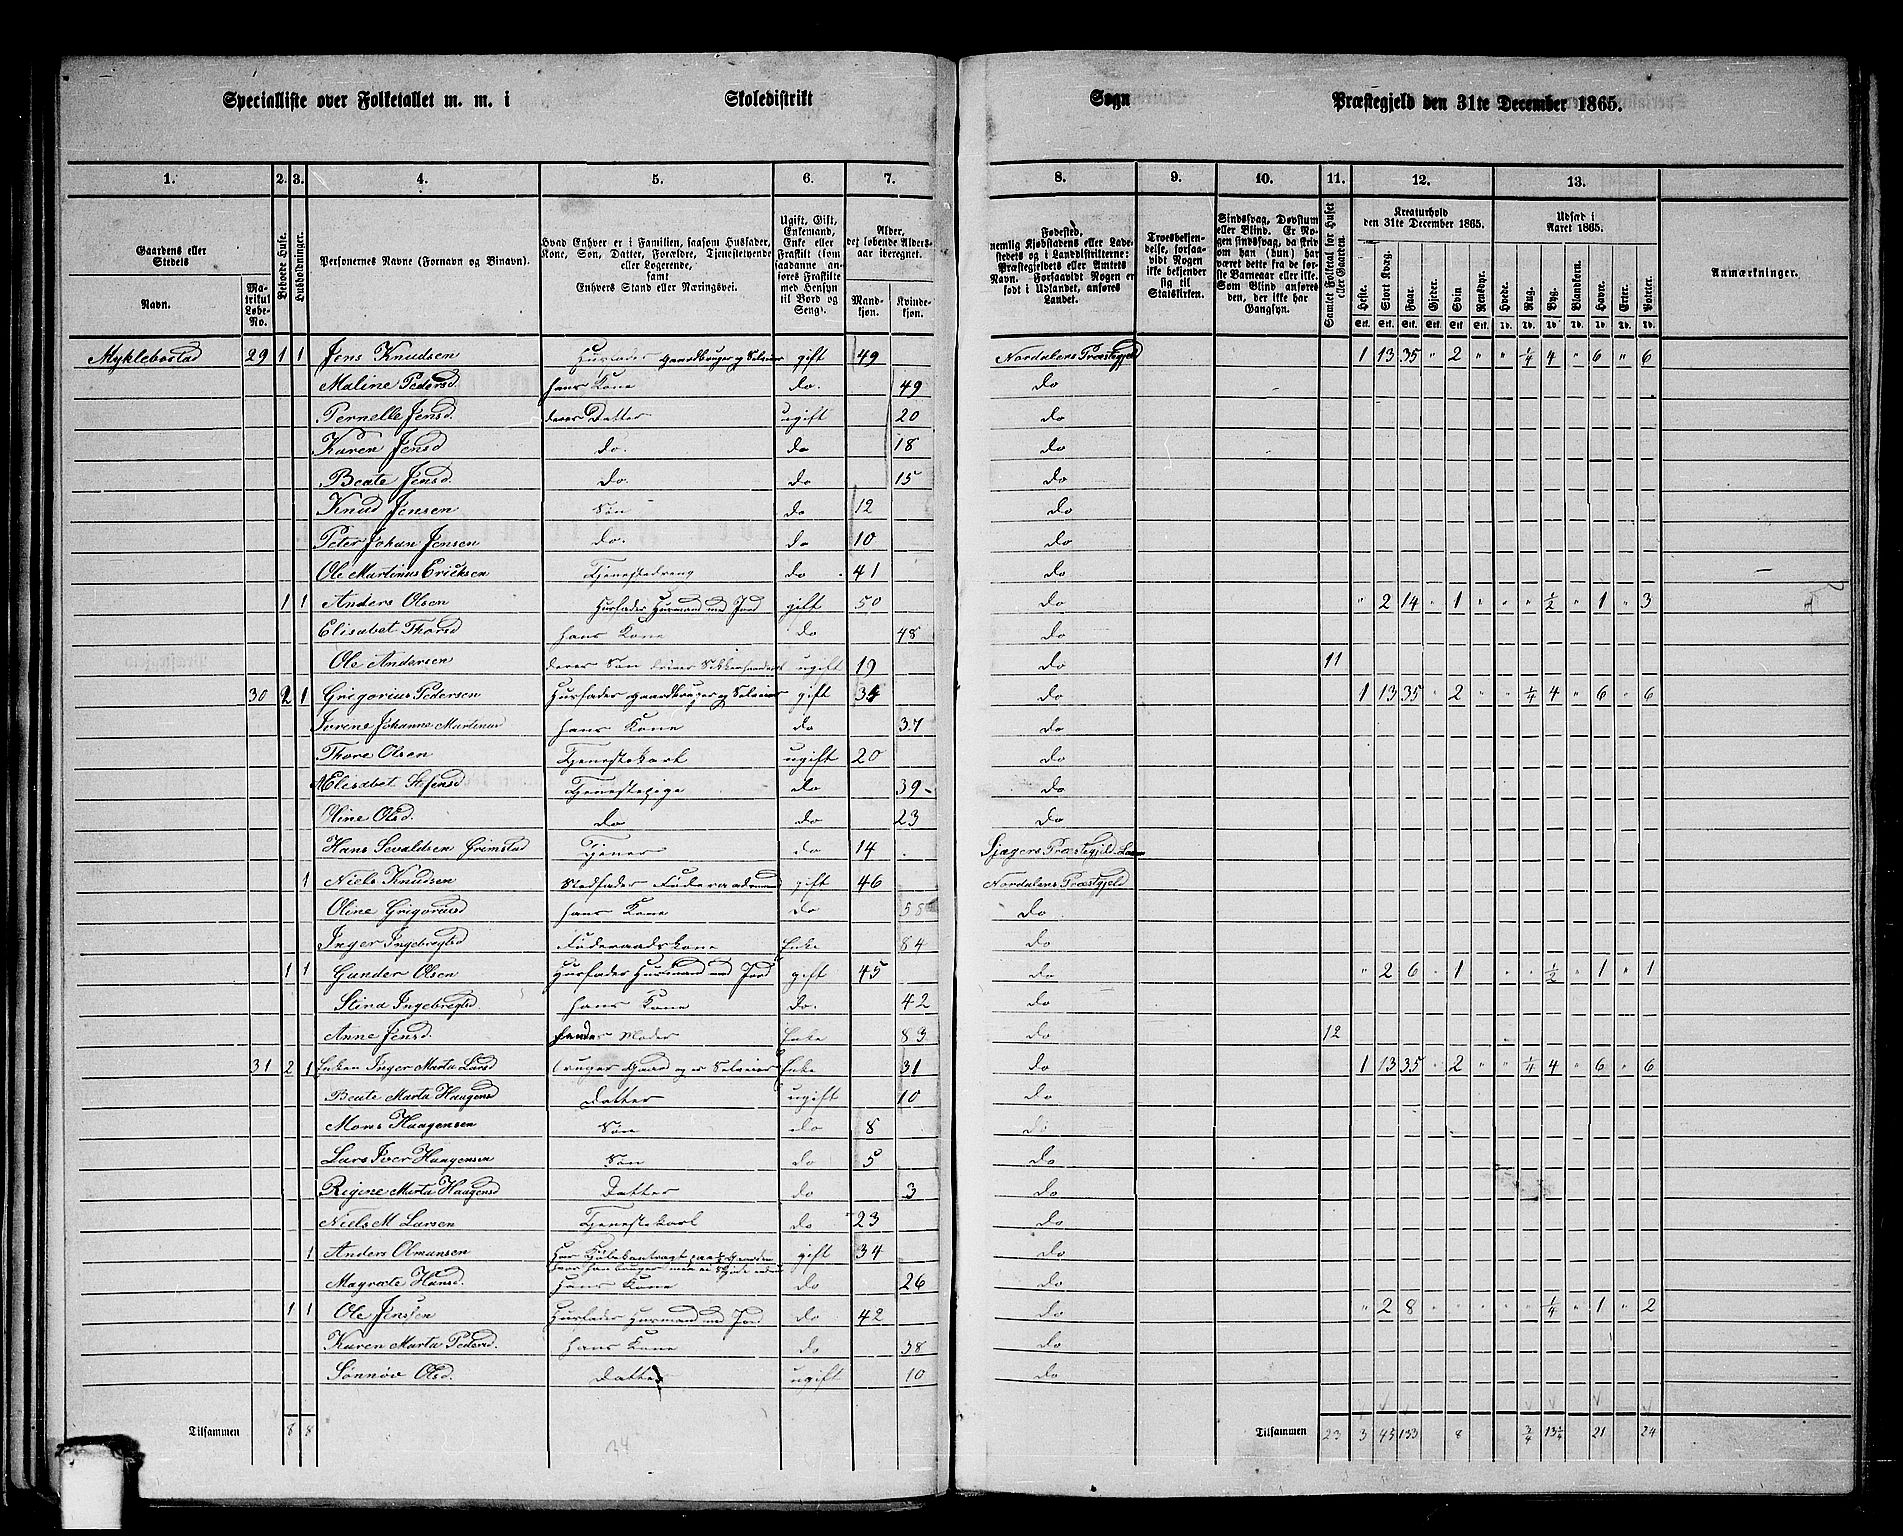 Specialliste over Folketallet m. m. i Skoledistrikt Sogn Præstegjeld den 31te December 1865.
1. 2. 3. 4. 5. 6. 7. 8. 9. 10. 11. 12. 13.
Gaardens eller Stedets
Navn.
Matrikul Løbe-No.
Beboede Huse.
Husholdninger.
Personernes Navne (Fornavn og Binavn).
Hvad Enhver er i Familien, saasom Husfader, Kone, Søn, Datter, Forældre, Tjenestetyende eller Logerende, samt Enhvers Stand eller Næringsvei.
Ugift, Gift, Enkemand, Enke eller Fraskilt (som saadanne anføres Fraskilte med Hensyn til Bord og Seng).
Alder, det løbende Alders-aar iberegnet.
Mandkjøn.
Kvindekjøn.
Fødested, nemlig Kjøbstadens eller Ladestedets og i Landdistrikterne: Præstegjeldets eller Amtets Navn. Forsaavidt Nogen er født i Udlandet, anføres Landet.
Troesbekjendelse, forsaavidt Nogen ikke bekjender sig til Statskirken.
Sindssvag, Døvstum eller Blind. Er Nogen sindssvag, da skrives om han (hun) har været dette fra de første Barneaar eller ikke. Som Blind anføres den, der ikke har Gangsyn.
Samlet Folketal for Huset eller Gaarden.
Kreaturhold den 31te December 1865.
Heste. Stort Kvæg. Faar. Gjeder. Svin. Rensdyr.
Udsæd i Aaret 1865.
Hvede. Rug. Byg. Blandkorn. Havre. Erter. Poteter.
Anmærkninger.
Myklebostad 29 1 1 Jens Knudsen Husfader Gaardbruger og Selveier gift 49 Nordalens Præstegjeld 1 13 35 " 2 " " ¼ 4 " 6 " 6
Maline Pedersd. hans Kone do. 49 do
Pernelle Jensd. deres Datter ugift 20 do
Karen Jensd do. do 18 do
Beate Jensd. do. do 15 do
Knud Jensen Søn do 12 do
Peter Johan Jensen do. do 10 do
Ole Martinus Ericksen Tjenestedreng do 41 do
1 1 Anders Olsen Husfader Husmand med Jord gift 50 do " 2 14 " 1 " " " ½ " 1 " 3
Elisabet Thorsd hans Kone do 48 do
Ole Andersen deres Søn ugift 19 do 11
30 2 1 Gregorius Pedersen Husfader Gaardbruger og Selveier gift 34 do 1 13 35 " 2 " " ¼ 4 " 6 " 6
Johanne hans Kone do 37 do
Thore Olsen Tjenestekarl ugift 20 do
Elisabet Tjenestepige do 39 do
Oline Olsd. do do 23 do
Hans Sevaldsen Grimstad Tjener do 14 Præstegjeld
1 Niels Knudsen gift 46 Nordalens Præstgjeld
Oline Grigoriusd hans Kone do 58 do
Inger Ingebregtsd Føderaadskone Enke 84 do
1 1 Gunder Olsen Husfader Husmand med Jord gift 45 do " 2 6 " 1 " " " ½ " 1 " 1
Stina Ingebregtsd. hans Kone do. 42 do
Anne Jensd. Moder Enke 83 do 12
31 2 1 Enken Inger Marta Larsd bruger Gaard og er Selveier Enke 31 do 1 13 35 " 2 " " ¼ 4 " 6 " 6
Beate Marta Haagensd Datter ugift 10 do
Mons Haagensen Søn do 8 do
Lars Iver Haagensen Søn do 5 do
Regine Marta Haagensd Datter do 3 do
Niels M Larsen Tjenestekarl do 23 do
1 Anders Olmunsen Har Kjøbekontragt paa ½ Gaarden gift 34 do
Magrete Hansd. Hans Kone do 26 do
1 1 Ole Jensen Husfader Husmand med Jord do 42 do " 2 8 " " " " " ¼ " 1 " 2
Karen Marta Pedersd. hans Kone do 38 do
Sønnøv Olsd. Datter ugift 10 do
Tilsammen 6 8 34 Tilsammen 23 3 45 133 8 ¾ 13¼ 21 24